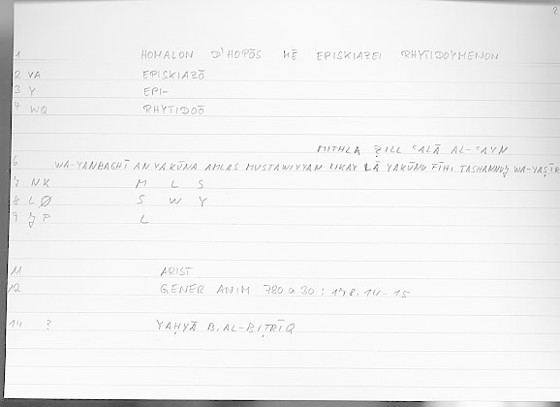 1 HOMALON D'HOPŌS MĒ EPISKIAZEI RHYTIDOYMENON
2 VA EPISKIAZŌ
3 Y EPI-
4 WQ RHYTIDOŌ
MITHLA ẒILL ʿALĀ AL-ʿAYN
6 WA-YANBAGHĪ AN YAKŪNA AMLAS MUSTAWIYYAN LIKAY LĀ YAKŪNU FĪHI TASHANNUǦ WA-YAṢĪR
7 NK M L S
8 LØ S W Y
9 P L
11 ARIST
12 GENER ANIM 780 a 30 : 178. 14-15
14 ? YAḤYĀ B. AL-BIṬRĪQ